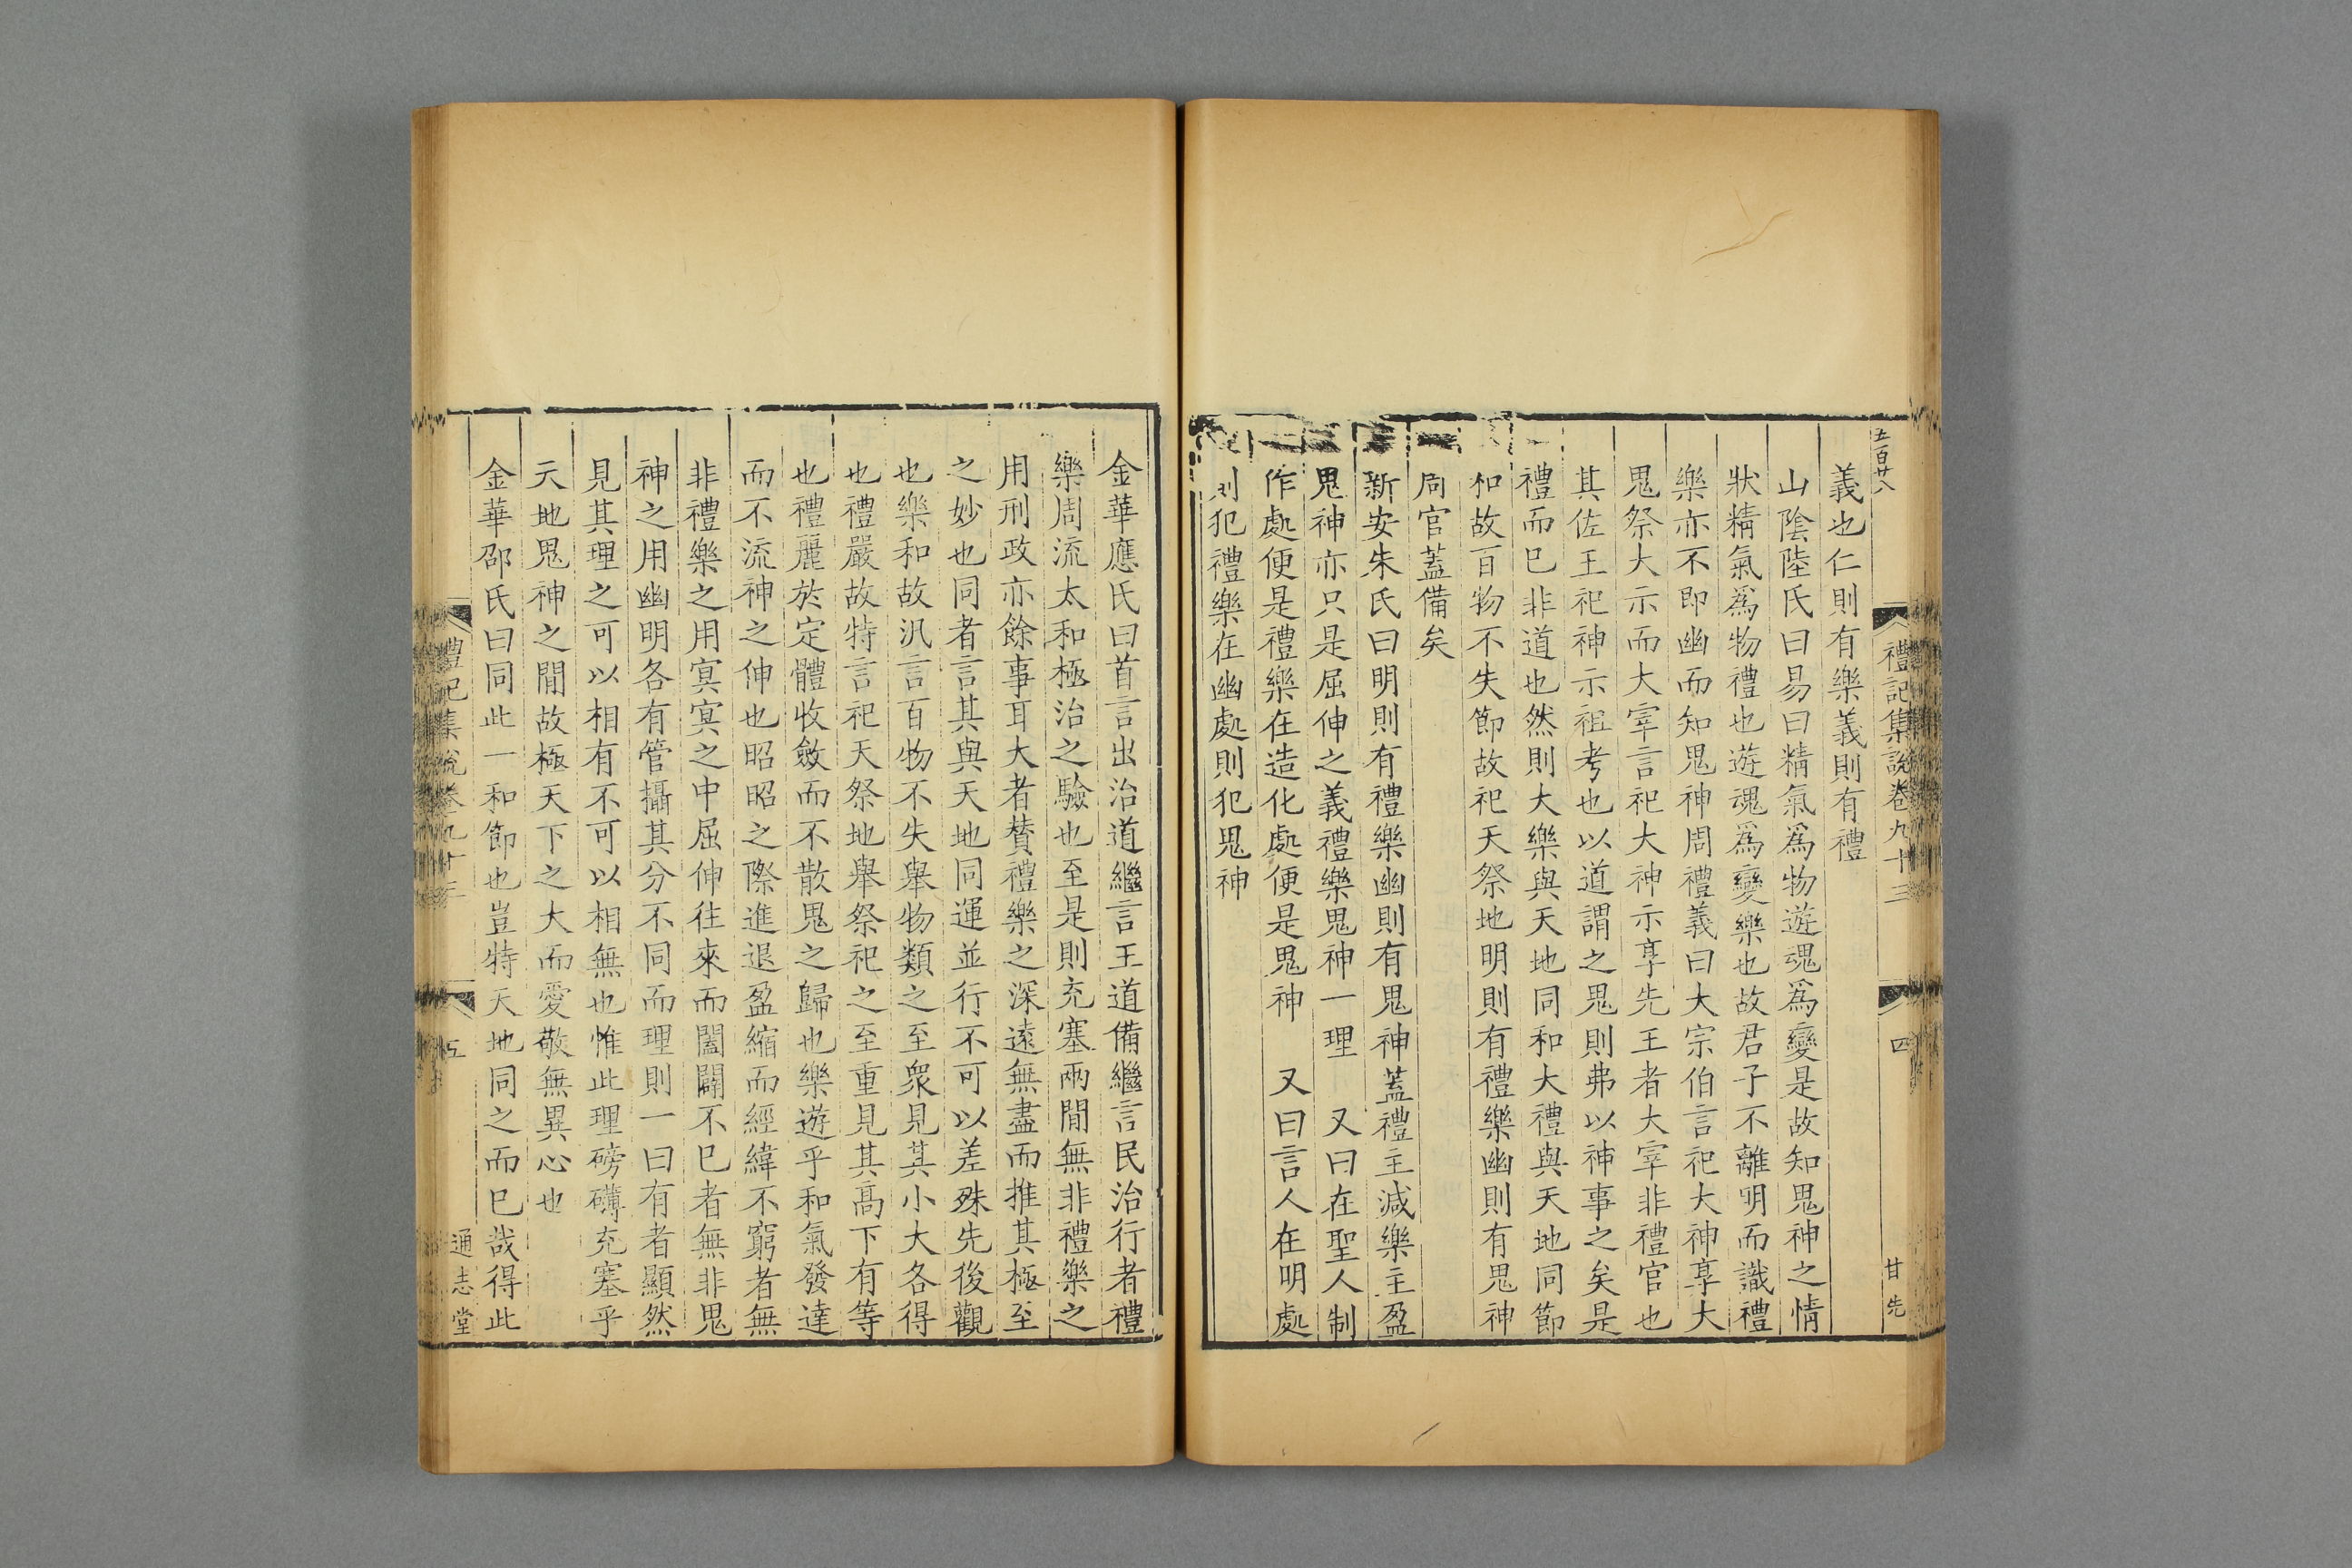 五百廿八
禮記集說卷九十三
四
甘先
義也仁則有樂義則有禮
山陰陸氏曰易曰精氣爲物遊魂爲變是故知鬼神之情
狀精氣爲物禮也遊魂爲變樂也故君子不離明而識禮
樂亦不即幽而知鬼神周禮義曰大宗伯言祀大神享大
鬼祭大示而大宰言祀大神示享先王者大宰非禮官也
其佐王祀神示祖考也以道謂之鬼則弗以神事之矣是
禮而巳非道也然則大樂與天地同和大禮與天地同節
和故百物不失節故祀天祭地明則有禮樂幽則有鬼神
周官蓋備矣
新安朱氏曰明則有禮樂幽則有鬼神蓋禮主減樂主盈
鬼神亦只是屈伸之義禮樂鬼神一理 又曰在聖人制
作處便是禮樂在造化處便是鬼神 又曰言人在明處
則犯禮樂在幽處則犯鬼神
金華應氏曰首言出治道繼言王道備繼言民治行者禮
樂周流太和極治之驗也至是則充塞兩間無非禮樂之
用刑政亦餘事耳大者賛禮樂之深遠無盡而推其極至
之妙也同者言其與天地同運並行不可以差殊先後觀
也樂和故汎言百物不失舉物類之至衆見其小大各得
也禮嚴故特言祀天祭地舉祭祀之至重見其高下有等
也禮麗於定體收斂而不散鬼之歸也樂遊乎和氣發達
而不流神之伸也昭昭之際進退盈縮而經緯不窮者無
非禮樂之用冥冥之中屈伸往來而闔闢不巳者無非鬼
神之用幽明各有管攝其分不同而理則一曰有者顯然
見其理之可以相有不可以相無也惟此理磅礡充塞乎
天地鬼神之間故極天下之大而愛敬無異心也
金華邵氏曰同此一和節也豈特天地同之而巳哉得此
禮記集說卷九十三
五
通志堂